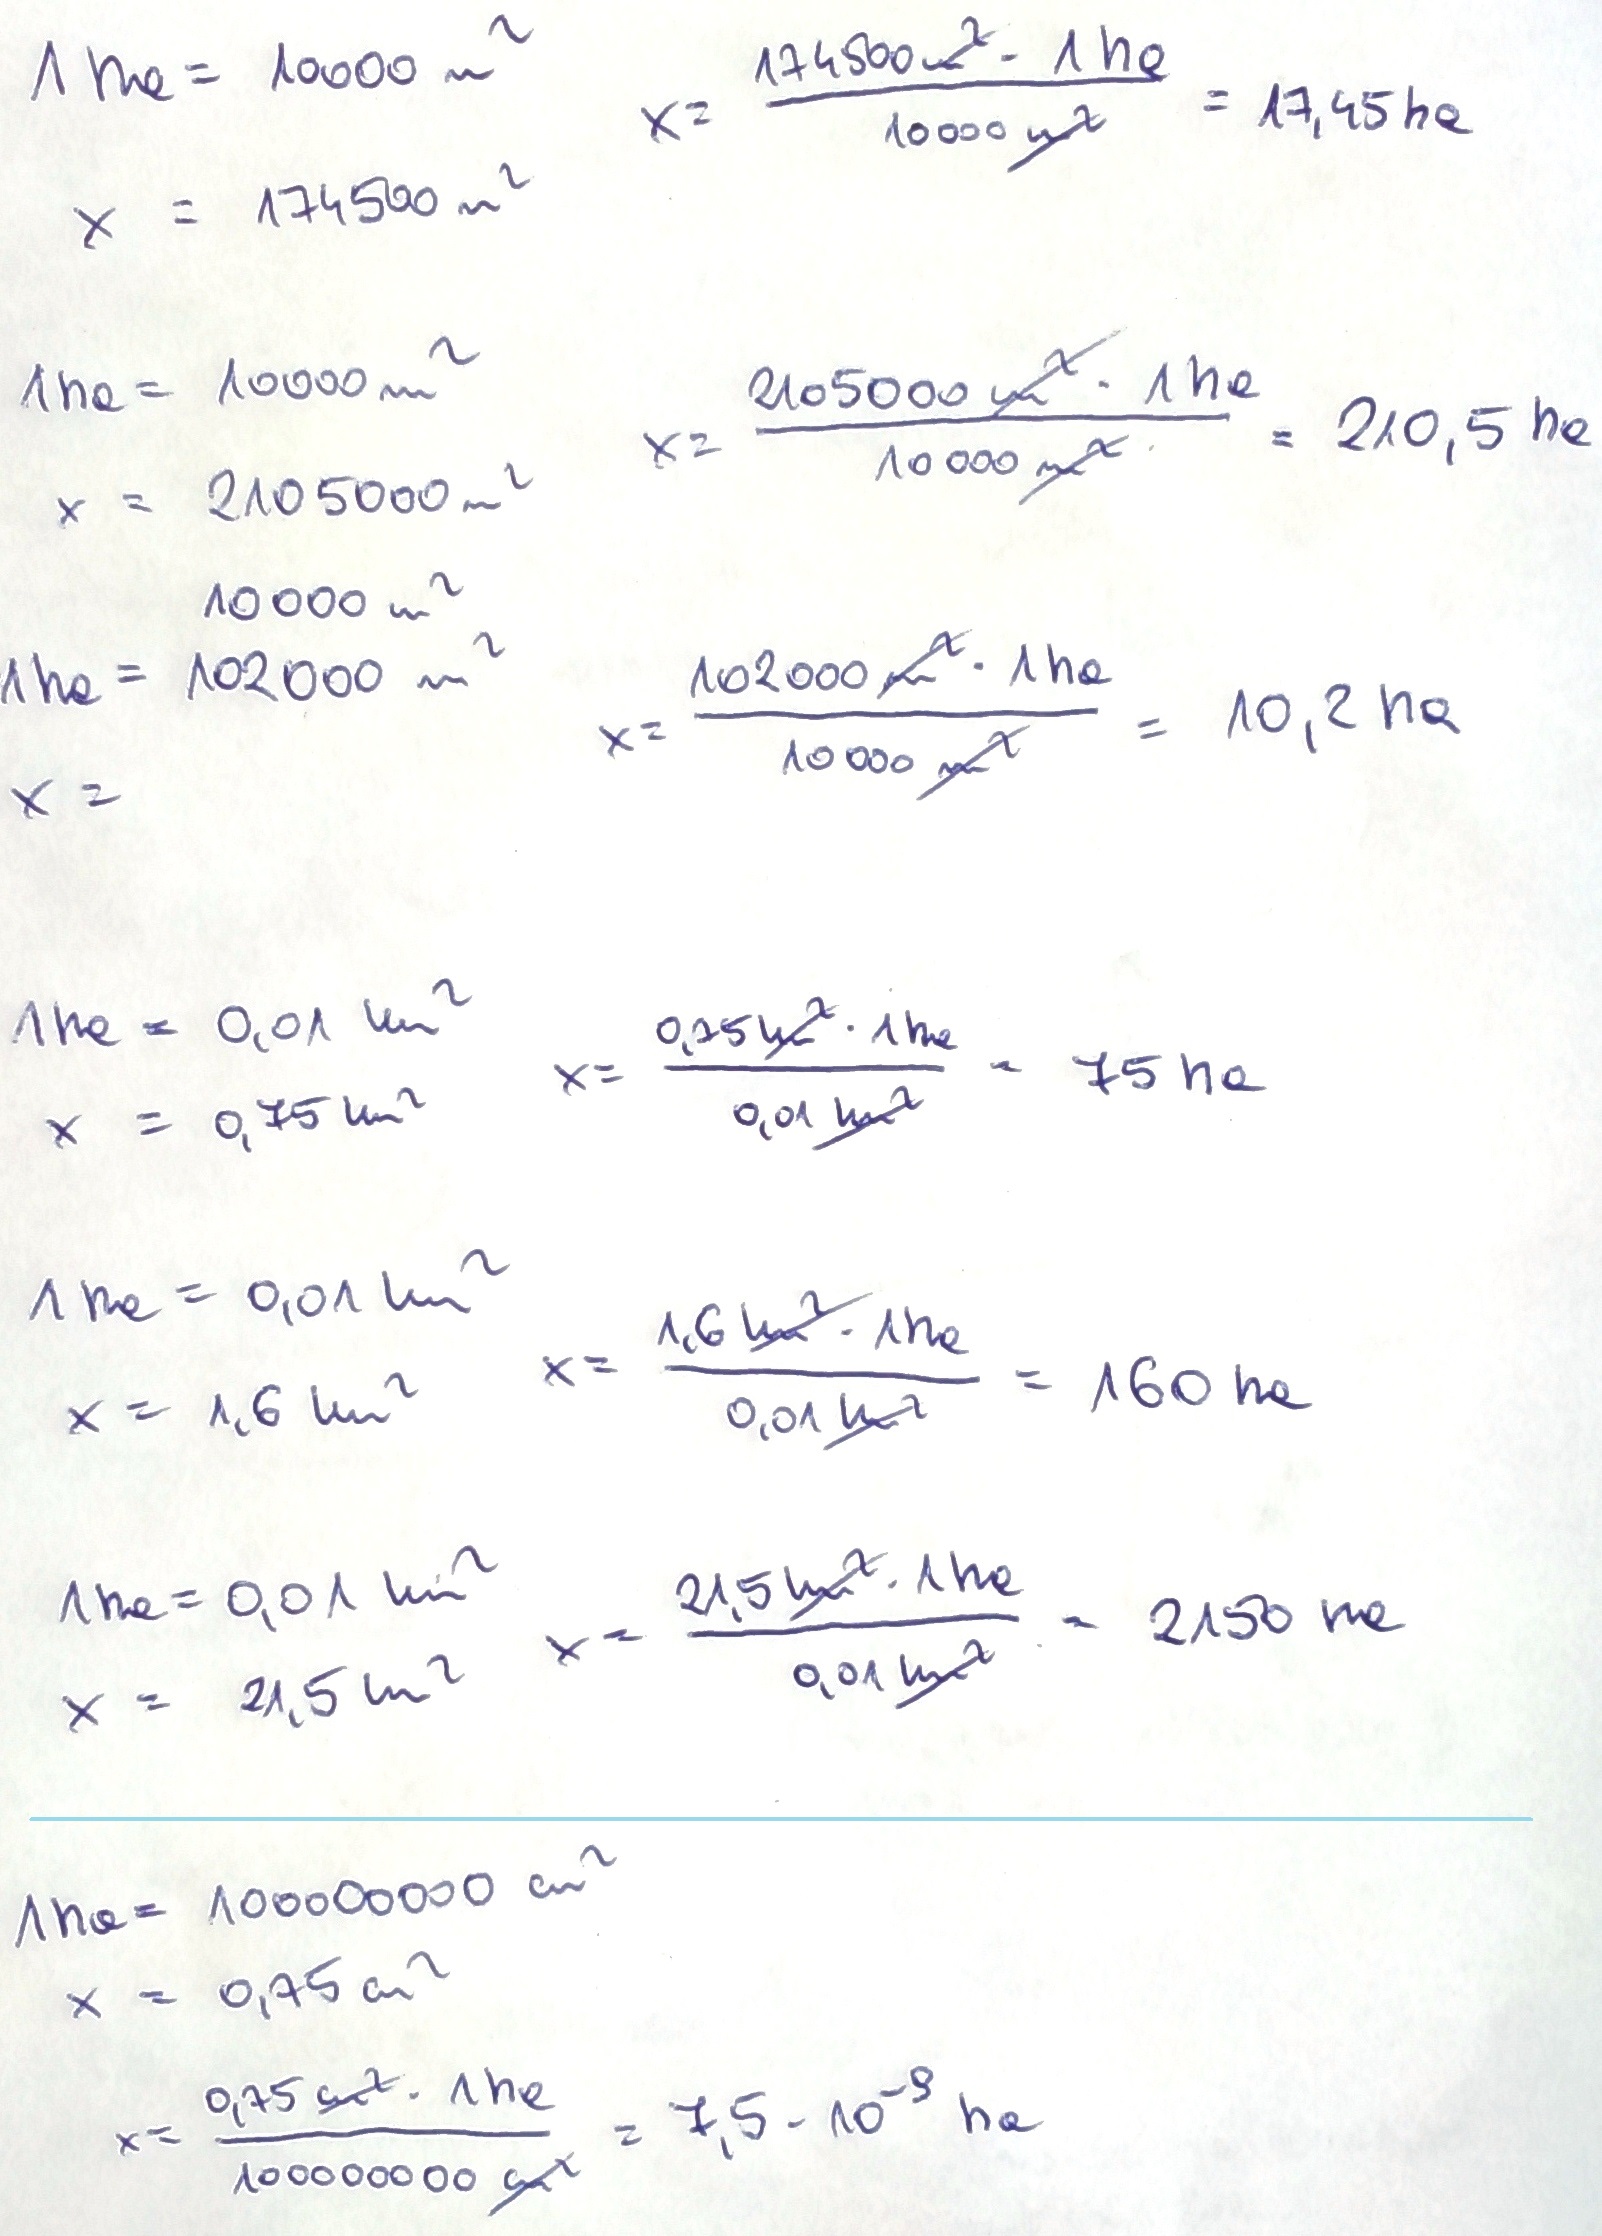 1 ha = 10000 m²
x = 174500 m²
x = 174500 m² · 1 ha / 10000 m² = 17,45 ha
1 ha = 10000 m²
x = 2105000 m²
x = 2105000 m² · 1 ha / 10000 m² = 210,5 ha
10000 m²
1 ha = 102000 m²
x =
x = 102000 m² · 1 ha / 10000 m² = 10,2 ha
1 ha = 0,01 km²
x = 0,75 km²
x = 0,75 km² · 1 ha / 0,01 km² = 75 ha
1 ha = 0,01 km²
x = 1,6 km²
x = 1,6 km² · 1 ha / 0,01 km² = 160 ha
1 ha = 0,01 km²
x = 21,5 km²
x = 21,5 km² · 1 ha / 0,01 km² = 2150 ha
1 ha = 100000000 cm²
x = 0,75 cm²
x = 0,75 cm² · 1 ha / 100000000 cm² = 7,5 · 10⁻⁹ ha